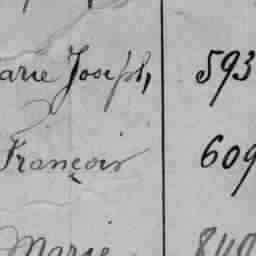 arie Joseph, 593
François 609
Marie 840